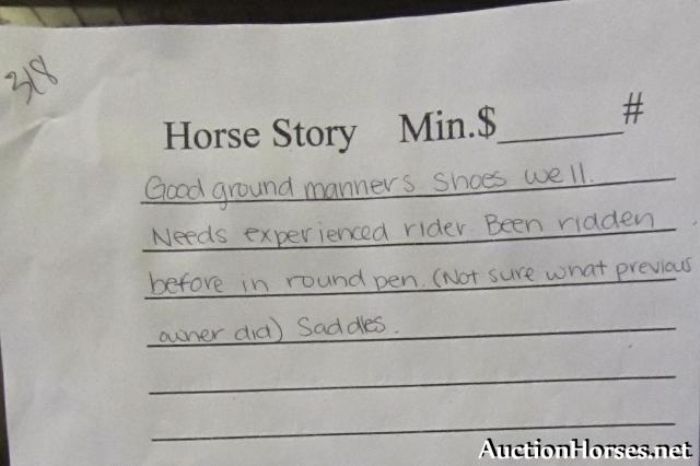 318
Horse Story Min.$______#
Good ground manners Shoes well.
Needs experienced rider. Been ridden
before in round pen. (Not sure what previous
owner did) Saddles.
AuctionHorses.net